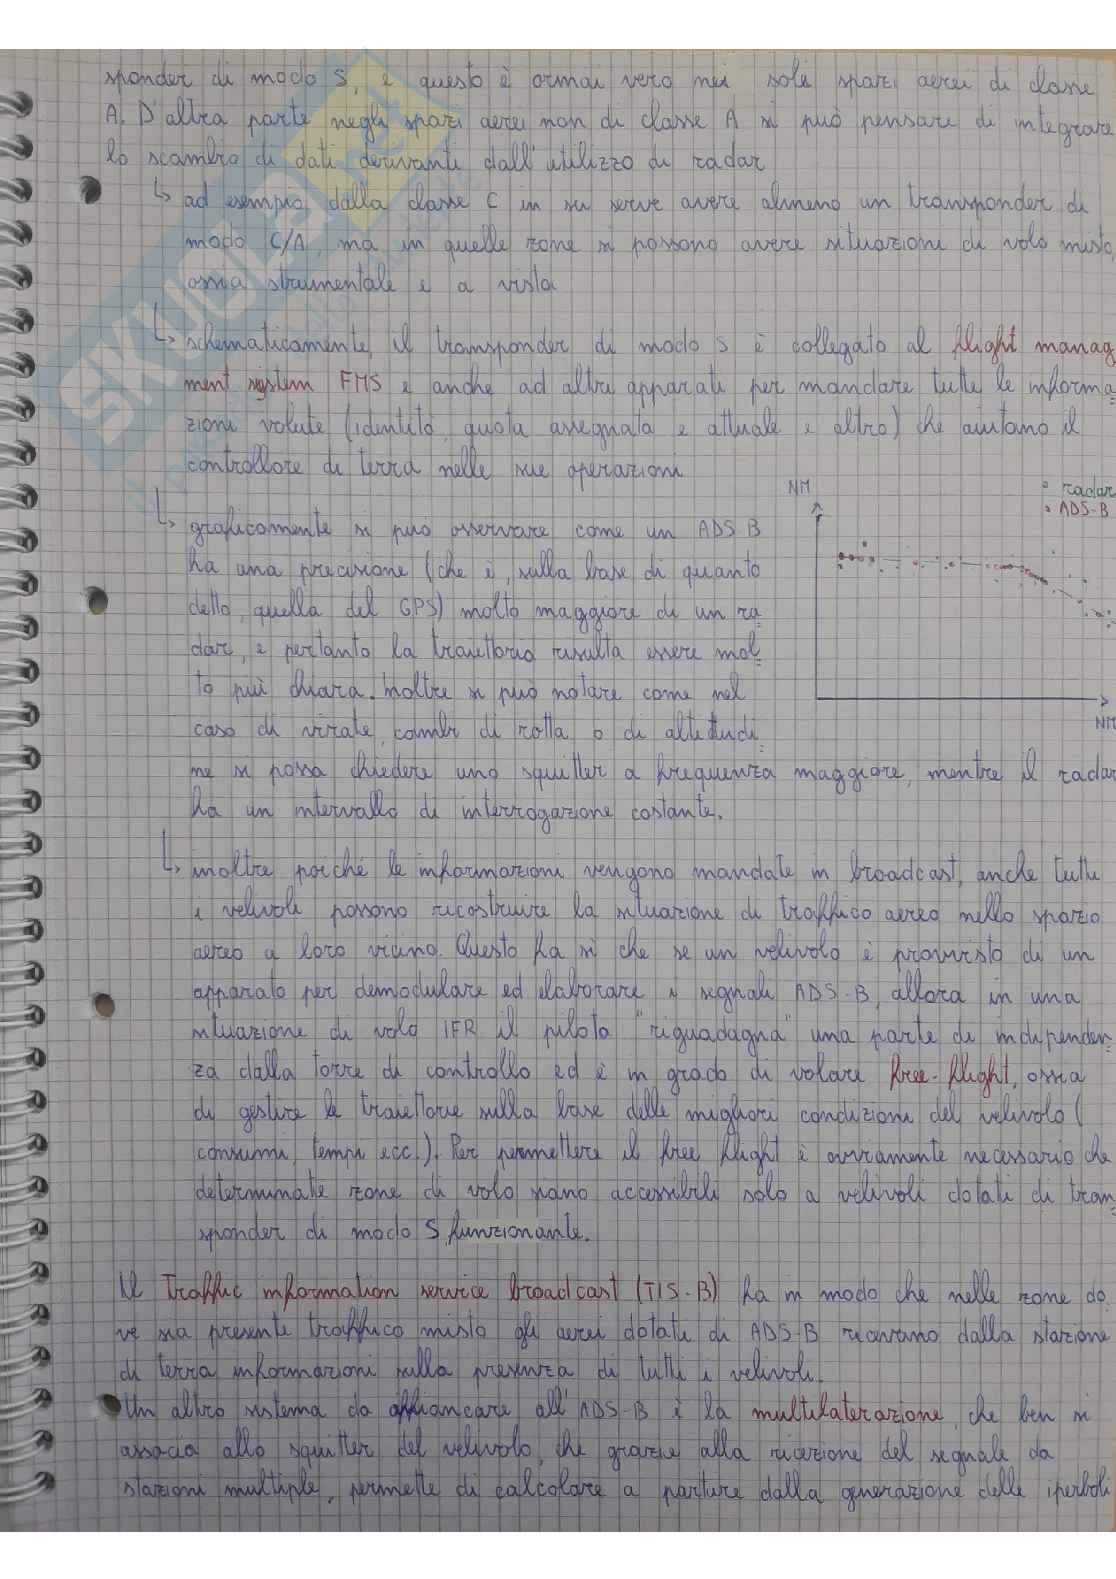 sponder di modo S, e questo è ormai vero nei soli spazi aerei di classe
A. D'altra parte negli spazi aerei non di classe A si può pensare di integrare
lo scambio di dati derivanti dall'utilizzo di radar
↳ ad esempio, dalla classe C in su serve avere almeno un transponder di
modo C/A, ma in quelle zone si possono avere situazioni di volo misto,
ossia strumentale e a vista
↳ schematicamente, il transponder di modo S è collegato al flight manag
ment system FMS e anche ad altri apparati per mandare tutte le informa=
zioni volute (identità, quota assegnata e attuale e altro) che aiutano il
controllore di terra nelle sue operazioni
NM
radar
ADS-B
↳ graficamente si può osservare come un ADS B
ha una precisione (che è, sulla base di quanto
detto, quella del GPS) molto maggiore di un ra=
dar, e pertanto la traiettoria risulta essere mol=
to più chiara. Inoltre si può notare come nel
caso di virate, cambi di rotta o di altitudi=
NM
ne si possa chiedere uno squitter a frequenza maggiore, mentre il radar
ha un intervallo di interrogazione costante.
↳ inoltre poiché le informazioni vengono mandate in broadcast, anche tutti
i velivoli possono ricostruire la situazione di traffico aereo nello spazio
aereo a loro vicino. Questo fa sì che se un velivolo è provvisto di un
apparato per demodulare ed elaborare i segnali ADS-B, allora in una
situazione di volo IFR il pilota "riguadagna" una parte di indipenden=
za dalla torre di controllo ed è in grado di volare free-flight, ossia
di gestire le traiettorie sulla base delle migliori condizioni del velivolo (
consumi, tempi ecc.). Per permettere il free flight è ovviamente necessario che
determinate zone di volo siano accessibili solo a velivoli dotati di tran=
sponder di modo S funzionante.
Il Traffic information service broadcast (TIS-B) fa in modo che nelle zone do
ve sia presente traffico misto gli aerei dotati di ADS-B ricevano dalla stazione
di terra informazioni sulla presenza di tutti i velivoli.
Un altro sistema da affiancare all'ADS-B è la multilaterazione, che ben si
associa allo squitter del velivolo, che grazie alla ricezione del segnale da
stazioni multiple, permette di calcolare a partire dalla generazione delle iperboli
SKUOLA.net